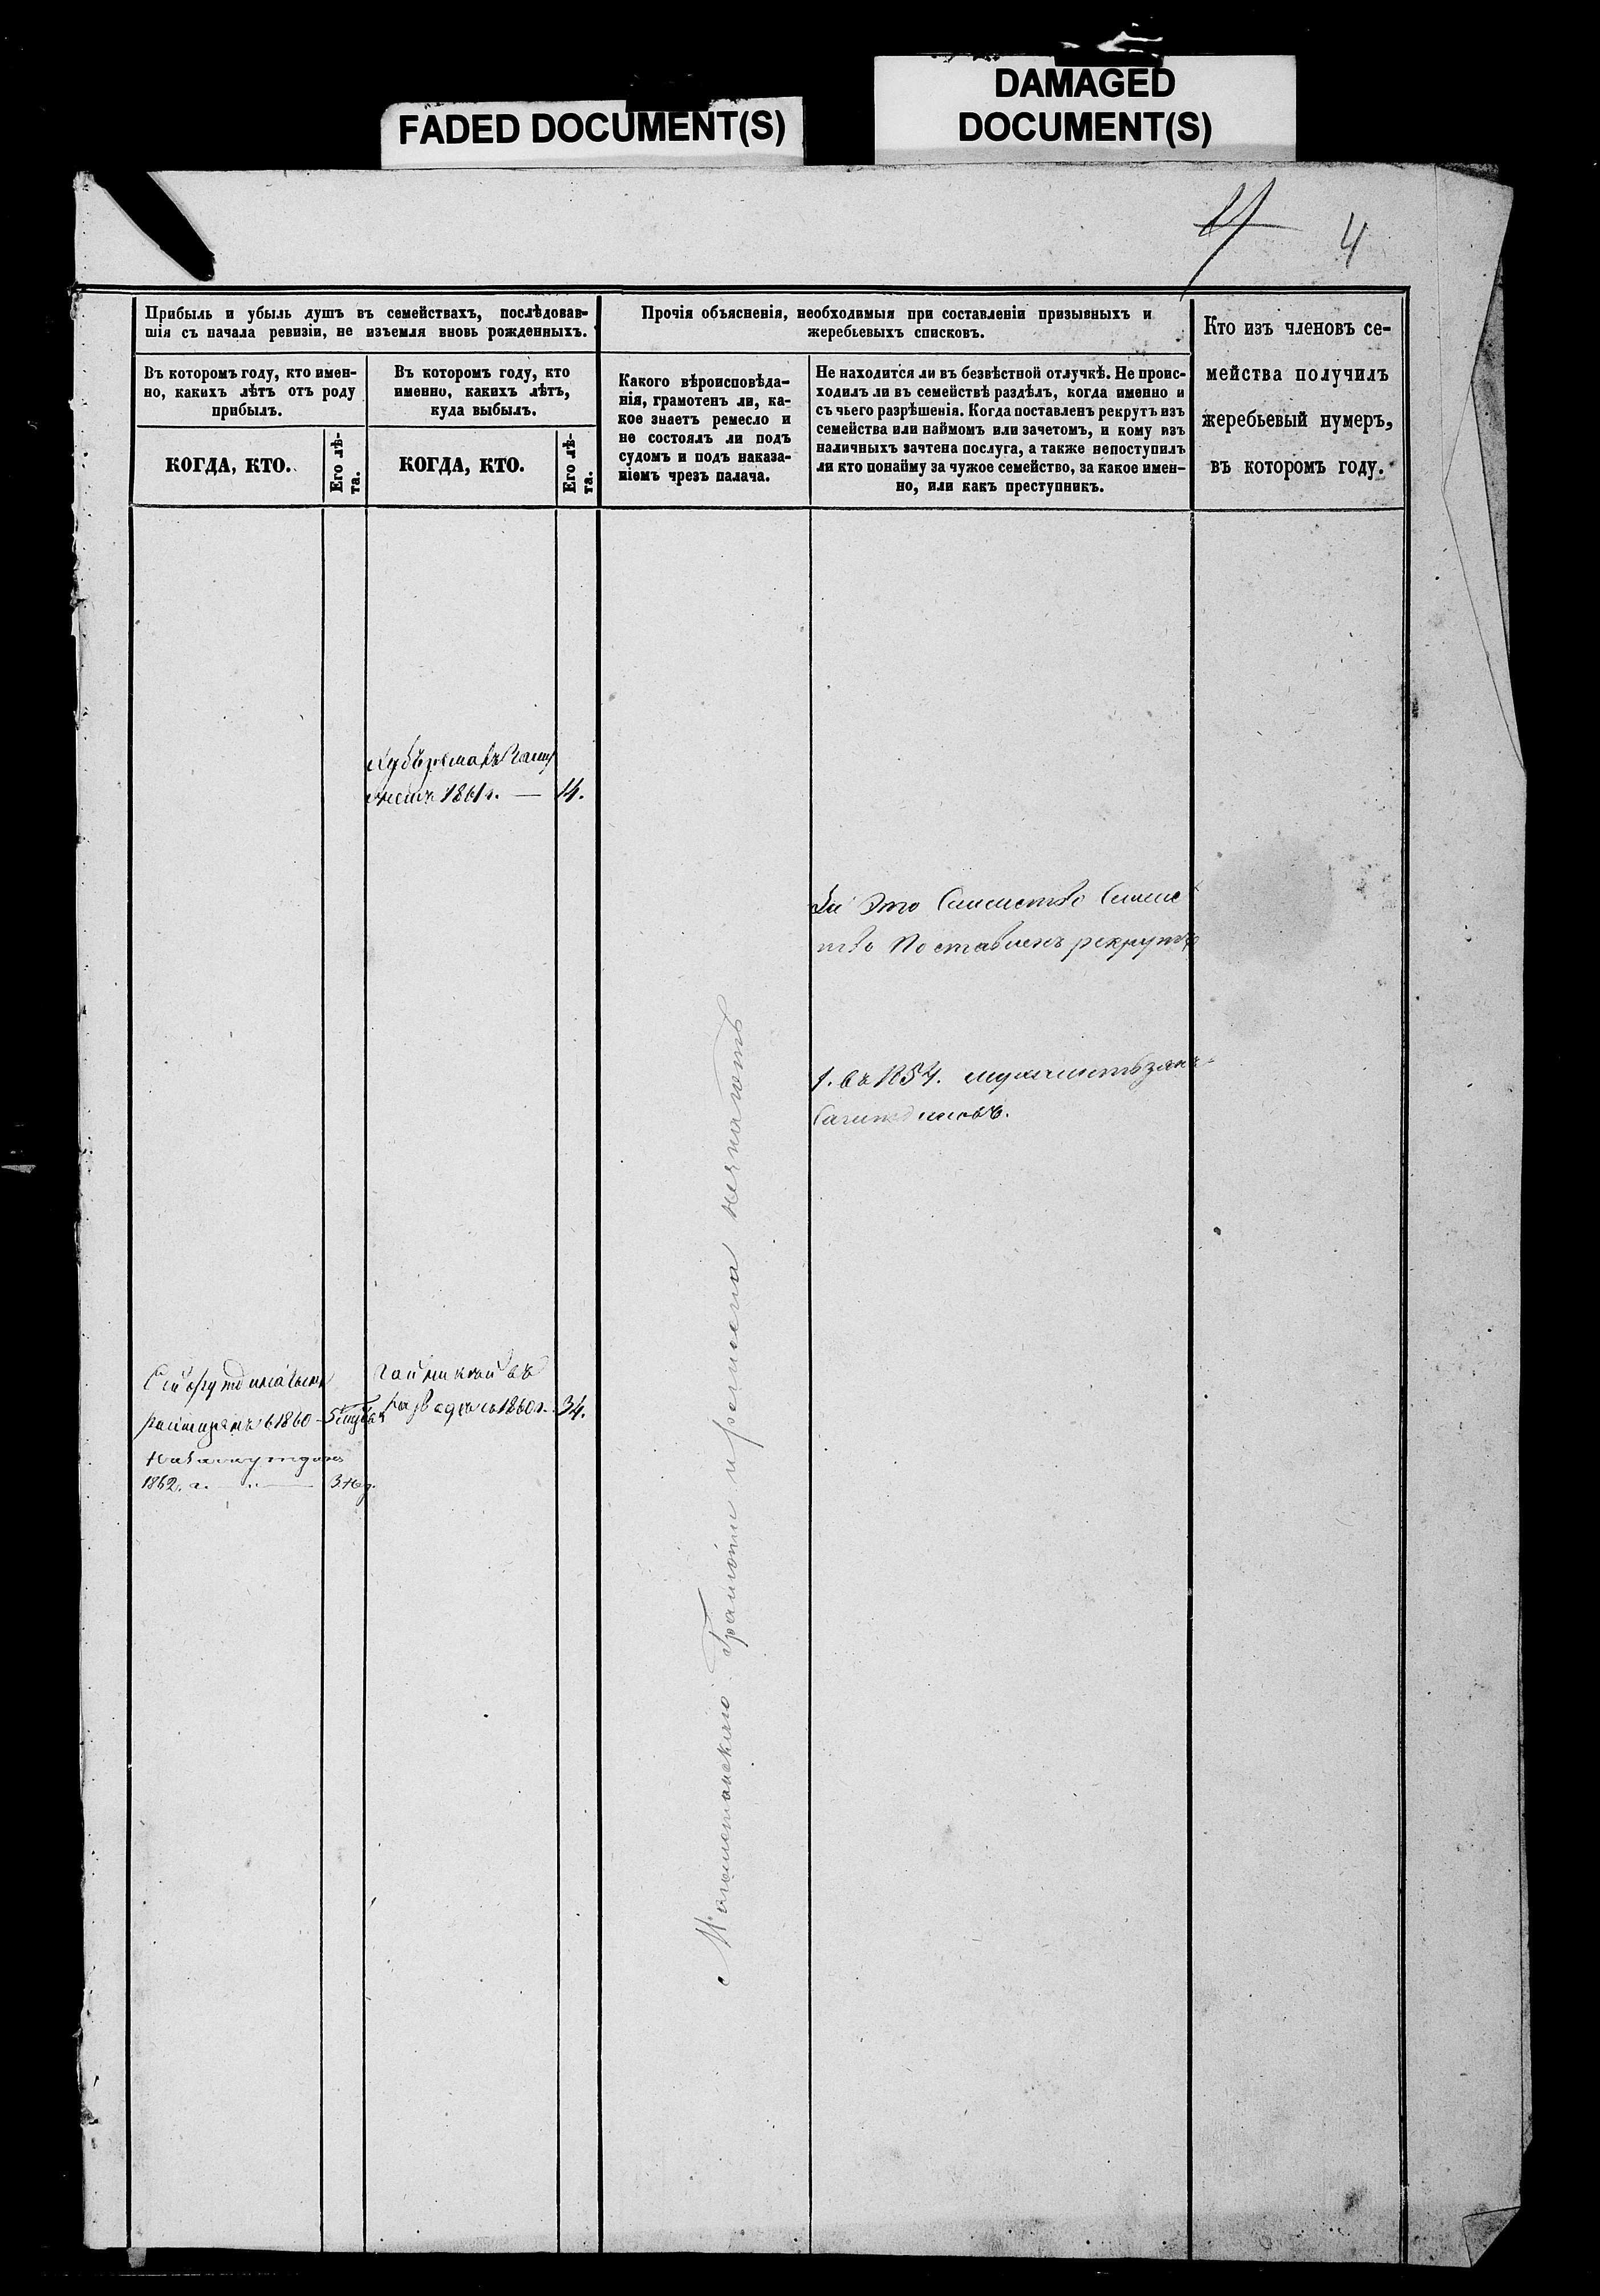 FADED DOCUMENT(S)
DAMAGED
DOCUMENT(S)
4
Прибыль и убыль душъ въ семействахъ, послѣдовав-
шія съ начала ревизіи, не изъемля вновь рожденныхъ.
Въ которомъ году, кто имен-
но, какихъ лѣтъ отъ роду
прибылъ.
КОГДА, КТО.
Его лѣ-
та.
Въ которомъ году, кто
именно, какихъ лѣтъ,
куда выбылъ.
КОГДА, КТО.
Его лѣ-
та.
Прочія объясненія, необходимыя при составленіи призывныхъ и
жеребьевыхъ списковъ.
Какого вѣроисповѣда-
нія, грамотенъ ли, ка-
кое знаетъ ремесло и
не состоялъ ли подъ
судомъ и подъ наказа-
ніемъ чрезъ палача.
Не находится ли въ безвѣстной отлучкѣ. Не проис-
ходилъ ли въ семействѣ раздѣлъ, когда именно и
съ чьего разрѣшенія. Когда поставленъ рекрутъ изъ
семейства или наймомъ или зачетомъ, и кому изъ
наличныхъ зачтена послуга, а также непоступилъ
ли кто понайму за чужое семейство, за какое имен-
но, или какъ преступникъ.
Кто изъ членовъ се-
мейства получилъ
жеребьевый нумеръ,
въ которомъ году.
1861 г. — 14.
Это Семейство
поставленъ рекрутъ
1. въ 1854.
1860
1860 г. 34.
1862. г. — 3 нед.
Магометанскаго Грамоты и ремесла незнаютъ